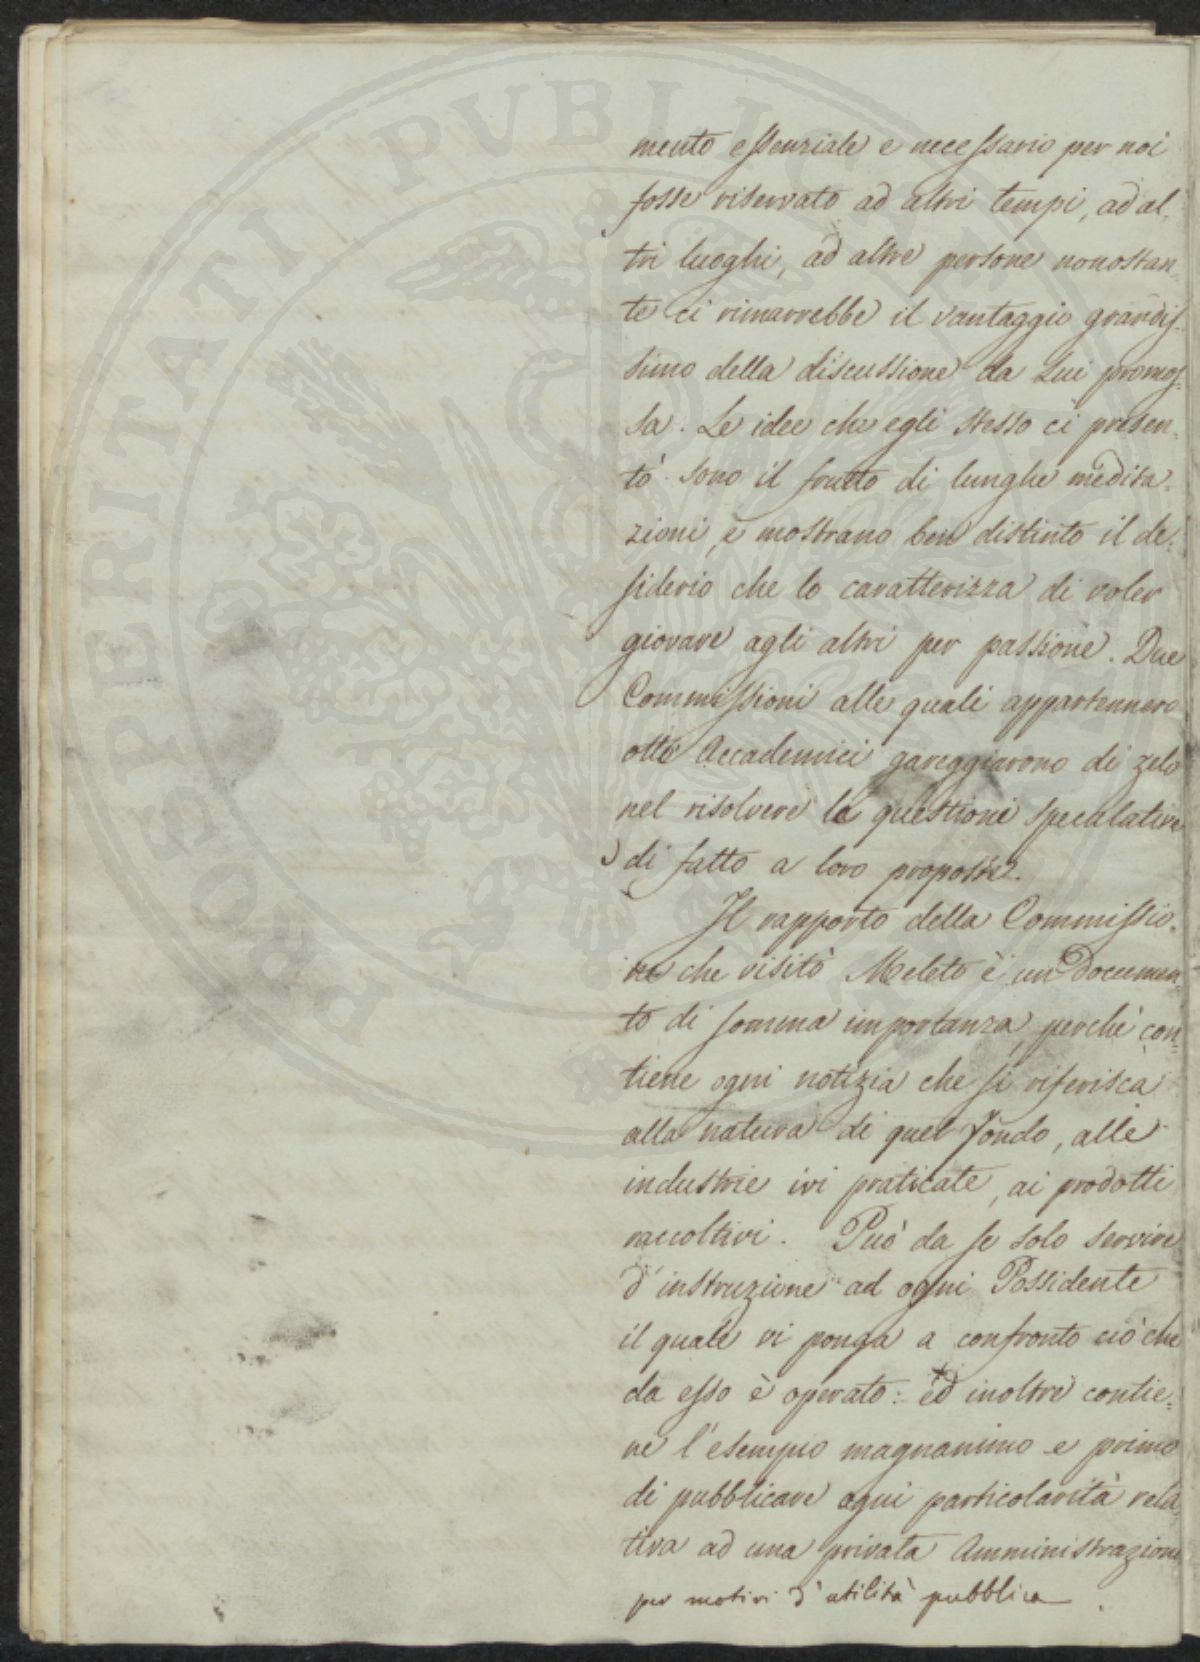 PROSPERITATI PUBLICAE
mento essenziale e necessario per noi
fosse riservato ad altri tempi, ad al-
tri luoghi, ad altre persone nonostan-
te ci rimarrebbe il vantaggio grandis-
simo della discussione da Lui promos-
sa. Le idee che egli stesso ci presen-
tò sono il frutto di lunghe medita-
zioni, e mostrano ben distinto il de-
siderio che lo caratterizza di voler
giovare agli altri per passione. Due
Commissioni alle quali appartennero
otto Accademici gareggiarono di zelo
nel risolvere le questioni speculative
di fatto a loro proposte.
Il rapporto della Commissio-
ne che visitò Meleto è un Documen-
to di somma importanza, perchè con-
tiene ogni notizia che si riferisca
alla natura di quel Fondo, alle
industrie ivi praticate, ai prodotti
raccoltivi. Può da se solo servire
d'instruzione ad ogni Possidente
il quale vi ponga a confronto ciò che
da esso è operato: ed inoltre contie-
ne l'esempio magnanimo e primo
di pubblicare ogni particolarità rela-
tiva ad una privata Amministrazione
per motivi d'utilità pubblica.